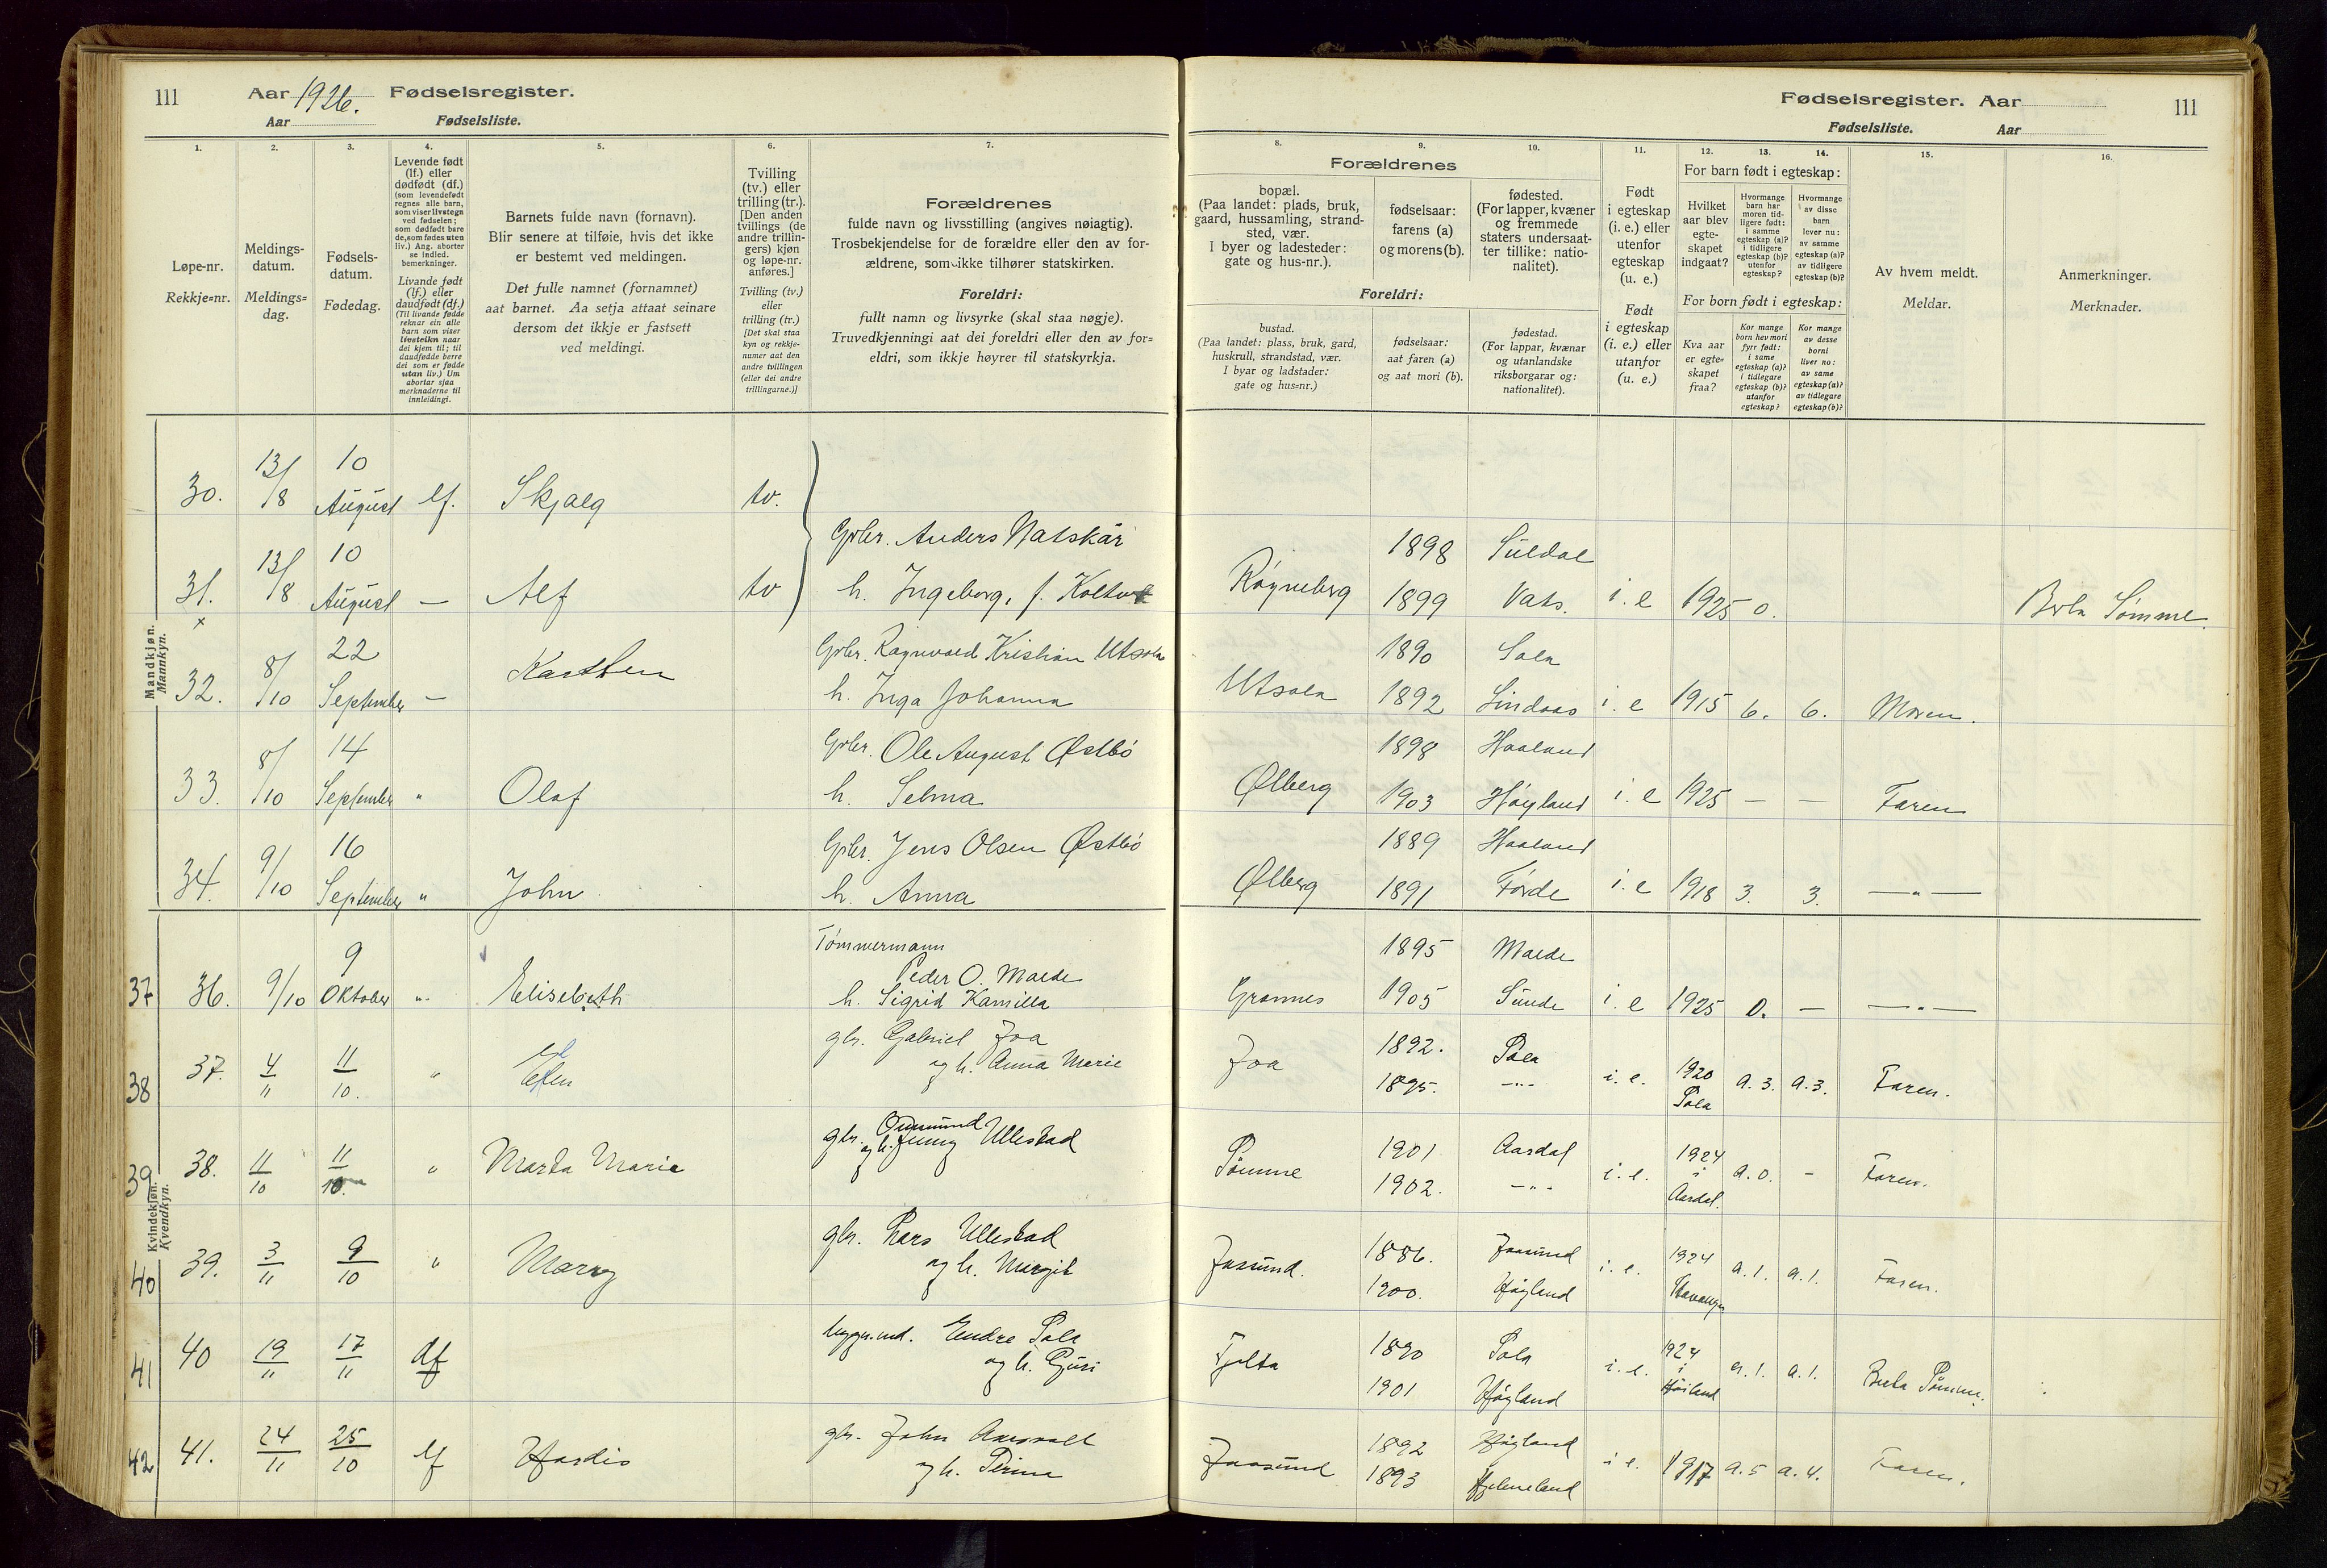 111 Aar 1926. Fødselsregister.
Aar Fødselsliste.
Fødselsregister. Aar 111
Fødselsliste. Aar
1. 2. 3. 4. 5. 6. 7. 8. 9. 10. 11. 12. 13. 14. 15. 16.
Løpe-nr.
Rekkje-nr.
Meldings-
datum.
Meldings-
dag.
Fødsels-
datum.
Fødedag.
Levende født
(lf.) eller
dødfødt (df.)
(som levendefødt
regnes alle barn,
som viser livstegn
ved fødselen;
som dødfødt bare
de, som fødes uten
liv.) Ang. aborter
se indled.
bemerkninger.
Livande født
(lf.) eller
daudfødt (df.)
(Til livande fødde
reknar ein alle
barn som viser
livsteikn naar
dei kjem til; til
daudfødde berre
dei som er fødde
utan liv.) Um
abortar sjaa
merknaderne til
innleidingi.
Barnets fulde navn (fornavn).
Blir senere at tilføie, hvis det ikke
er bestemt ved meldingen.
Det fulle namnet (fornamnet)
aat barnet. Aa setja attaat seinare
dersom det ikkje er fastsett
ved meldingi.
Tvilling
(tv.) eller
trilling (tr.).
[Den anden
tvillings (de
andre trillin-
gers) kjøn
og løpe-nr.
anføres.]
Tvilling (tv.)
eller
trilling (tr.)
[Det skal staa
kyn og rekkje-
numer aat den
andre tvillingen
(eller dei andre
trillingarne.)]
Forældrenes
fulde navn og livsstilling (angives nøiagtig).
Trosbekjendelse for de forældre eller den av for-
ældrene, som ikke tilhører statskirken.
Foreldri:
fullt namn og livsyrke (skal staa nøgje).
Truvedkjenningi aat dei foreldri eller den av for-
eldri, som ikkje høyrer til statskyrkja.
Forældrenes
bopæl.
(Paa landet: plads, bruk,
gaard, hussamling, strand-
sted, vær.
I byer og ladesteder:
gate og hus-nr.).
fødselsaar:
farens (a)
og morens (b).
fødested.
(For lapper, kvæner
og fremmede
staters undersaat-
ter tillike: natio-
nalitet).
Foreldri:
bustad.
(Paa landet: plass, bruk, gard,
huskrull, strandstad, vær.
I byar og ladstader:
gate og hus-nr.)
fødselsaar:
aat faren (a)
og aat mori (b).
fødestad.
(For lappar, kvænar
og utanlandske
riksborgarar og:
nationalitet).
Født
i egteskap
(i. e.) eller
utenfor
egteskap
(u. e.)
Født
i egteskap
(i. e.) eller
utanfor
(u. e.)
For barn født i egteskap:
Hvilket
aar blev
egte-
skapet
indgaat?
Hvormange
barn har
moren tid-
ligere født:
i samme
egteskap (a)?
i tidligere
egteskap (b)?
utenfor
egteskap?
Hvormange
av disse
barn
lever nu:
av samme
egteskap (a)?
av tidligere
egteskap (b)?
For born født i egteskap:
Kva aar
er egte-
skapet
fraa?
Kor mange
born hev mori
fyrr født:
i same
egteskap (a)?
i tidlegare
egteskap (b)?
utanfor
egteskap?
Kor mange
av desse
borni
liver no:
av same
egteskap (a)?
av tidlegare
egteskap (b)?
Av hvem meldt.
Meldar.
Anmerkninger.
Merknader.
Mandkjøn.
Mannkyn.
30. 13/8 10 August lf. Skjalg tv.
31. 13/8 10 August — Alf tv
Gbr. Anders Natskår 1898 Suldal
h. Ingeborg, f. Røyneberg 1899 Vats. i. e 1925 0. Berta Sømme.
x
32. 8/10 22 September — Karsten Gbr. Ragnvald Kristian Utsola 1890 Sola
h. Inga Johanna Utsola 1892 Lindaas i. e 1915 6. 6. Moren.
33. 8/10 14 September " Olaf Gbr. Ole August Østbø 1898 Haaland
h. Selma Ølberg 1903 Høyland i. e 1925 — — Faren
34. 9/10 16 September " John Gbr. Jens Olsen Østbø 1889 Haaland
h. Anna Ølberg 1891 Førde i. e 1918 3. 3. —"—
Kvindekjøn.
Kvendkyn.
37 36. 9/10 9 Oktober " Elisabeth Tømmermann
Peder O. Malde 1895 Malde
h. Sigrid Kamilla Grannes 1905 Sunde i. e 1925 0. — —"—
38 37. 4/11 11/10. " Ellen gbr. Gabriel Joa 1892. Sola
og h. Anna Marie Joa 1895. —"— i. e. 1920 Sola a. 3. a. 3. Faren.
39 38. 11/10 11/10. " Marta Marie gbr. Osmund Ullestad 1901 Aardal
og h. Jenny Sømme 1902. —"— i. e. 1924 i Aardal. a. 0. - Faren.
40 39. 3/11 9/10 " Marry gbr. Lars Ullestad 1886. Jaasund
og h. Margit Jasund. 1900. Høyland i. e. 1924 Stavanger a. 1. a. 1. Faren.
41 40 19/11 17/11 df byggn.md. Endre Sola 1890 Sola
og h. Guri Tjelta 1901 Høyland i. e. 1924 i Høiland a. 1. a. 1. Berta Sømme.
42 41. 24/11 25/10 lf Hardis gbr. John 1892 Høyland
og h. Perina Jaasund 1893 Hjelmeland i e. 1917 a. 5 a. 4. Faren.